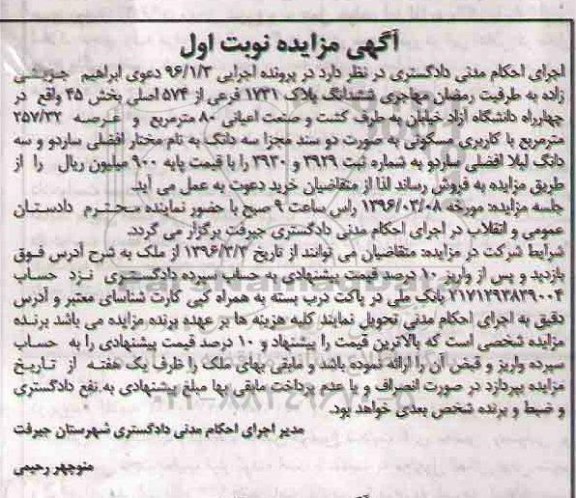 آگهی مزایده نوبت اول
اجرای احکام مدنی دادگستری در نظر دارد در پرونده اجرایی ۹۶/۱/۳ دعوی ابراهیم جریشی
زاده به طرفیت رمضان مهاجری ششدانگ پلاک ۱۷۳۱ فرعی از ۵۷۴ اصلی بخش ۴۵ واقع در
چهارراه دانشگاه آزاد خیابان به طرف کشت و صنعت اعیانی ۸۰ مترمربع و عرصه ۲۵۷/۳۲
مترمربع با کاربری مسکونی به صورت دو سند مجزا سه دانگ به نام مختار افضلی ساردو و سه
دانگ لیلا افضلی ساردو به شماره ثبت ۳۹۲۹ و ۳۹۳۰ را با قیمت پایه ۹۰۰ میلیون ریال را از
طریق مزایده به فروش رساند لذا از متقاضیان خرید دعوت به عمل می آید.
جلسه مزایده: مورخه ۱۳۹۶/۰۳/۰۸ راس ساعت ۹ صبح با حضور نماینده محترم دادستان
عمومی و انقلاب در اجرای احکام مدنی دادگستری جیرفت برگزار می گردد.
شرایط شرکت در مزایده: متقاضیان می توانند از تاریخ ۱۳۹۶/۳/۲ از ملک به شرح آدرس فوق
بازدید و پس از واریز ۱۰ درصد قیمت پیشنهادی به حساب سپرده دادگستری نزد حساب
۲۱۷۱۲۹۳۸۳۹۰۰۴ بانک ملی در پاکت درب بسته به همراه کپی کارت شناسای معتبر و آدرس
دقیق به اجرای احکام مدنی تحویل نمایند کلیه هزینه ها بر عهده برنده مزایده می باشد برنده
مزایده شخصی است که بالاترین قیمت را پیشنهاد و ۱۰ درصد قیمت پیشنهادی را به حساب
سپرده واریز و قبض آن را ارائه نموده باشد و مابقی بهای ملک را ظرف یک هفته از تاریخ
مزایده بپردازد در صورت انصراف و یا عدم پرداخت مابقی بها مبلغ پیشنهادی به نفع دادگستری
و ضبط و برنده شخص بعدی خواهد بود.
مدیر اجرای احکام مدنی دادگستری شهرستان جیرفت
منوچهر رحیمی